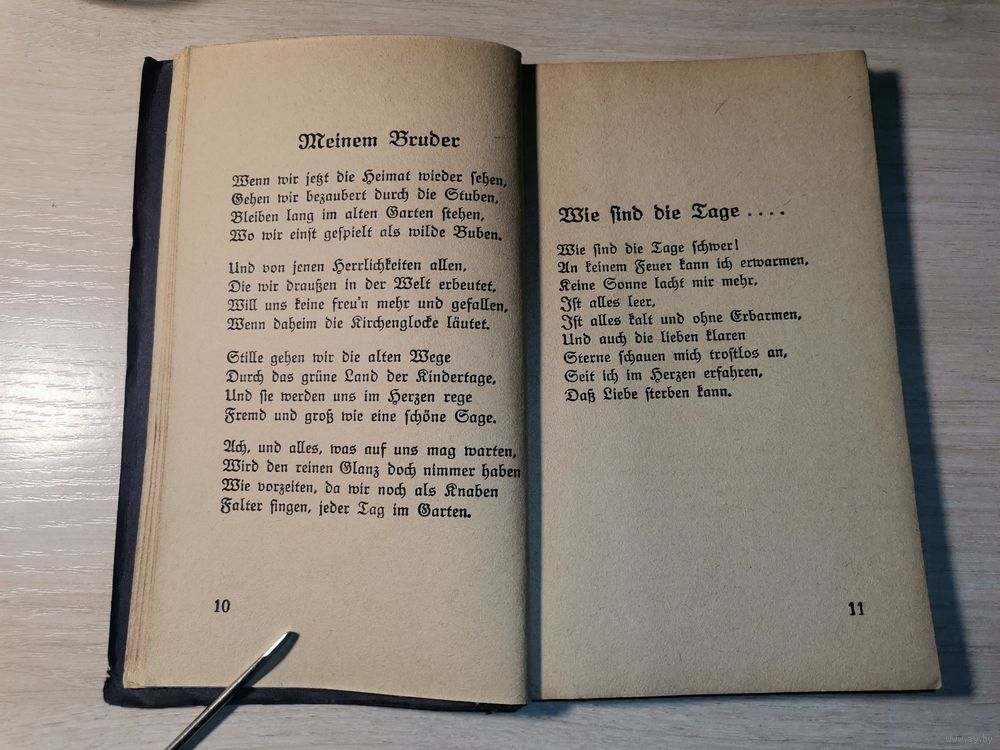 Meinem Bruder
Wenn wir jetzt die Heimat wieder sehen,
Gehen wir bezaubert durch die Stuben,
Bleiben lang im alten Garten stehen,
Wo wir einst gespielt als wilde Buben.
Und von jenen Herrlichkeiten allen,
Die wir draußen in der Welt erbeutet,
Will uns keine freu'n mehr und gefallen,
Wenn daheim die Kirchenglocke läutet.
Stille gehen wir die alten Wege
Durch das grüne Land der Kindertage,
Und sie werden uns im Herzen rege
Fremd und groß wie eine schöne Sage.
Ach, und alles, was auf uns mag warten,
Wird den reinen Glanz doch nimmer haben
Wie vorzeiten, da wir noch als Knaben
Falter fingen, jeder Tag im Garten.
10
Wie sind die Tage ....
Wie sind die Tage schwer!
An keinem Feuer kann ich erwarmen,
Keine Sonne lacht mir mehr,
Ist alles leer,
Ist alles kalt und ohne Erbarmen,
Und auch die lieben klaren
Sterne schauen mich trostlos an,
Seit ich im Herzen erfahren,
Daß Liebe sterben kann.
11
www.ay.by